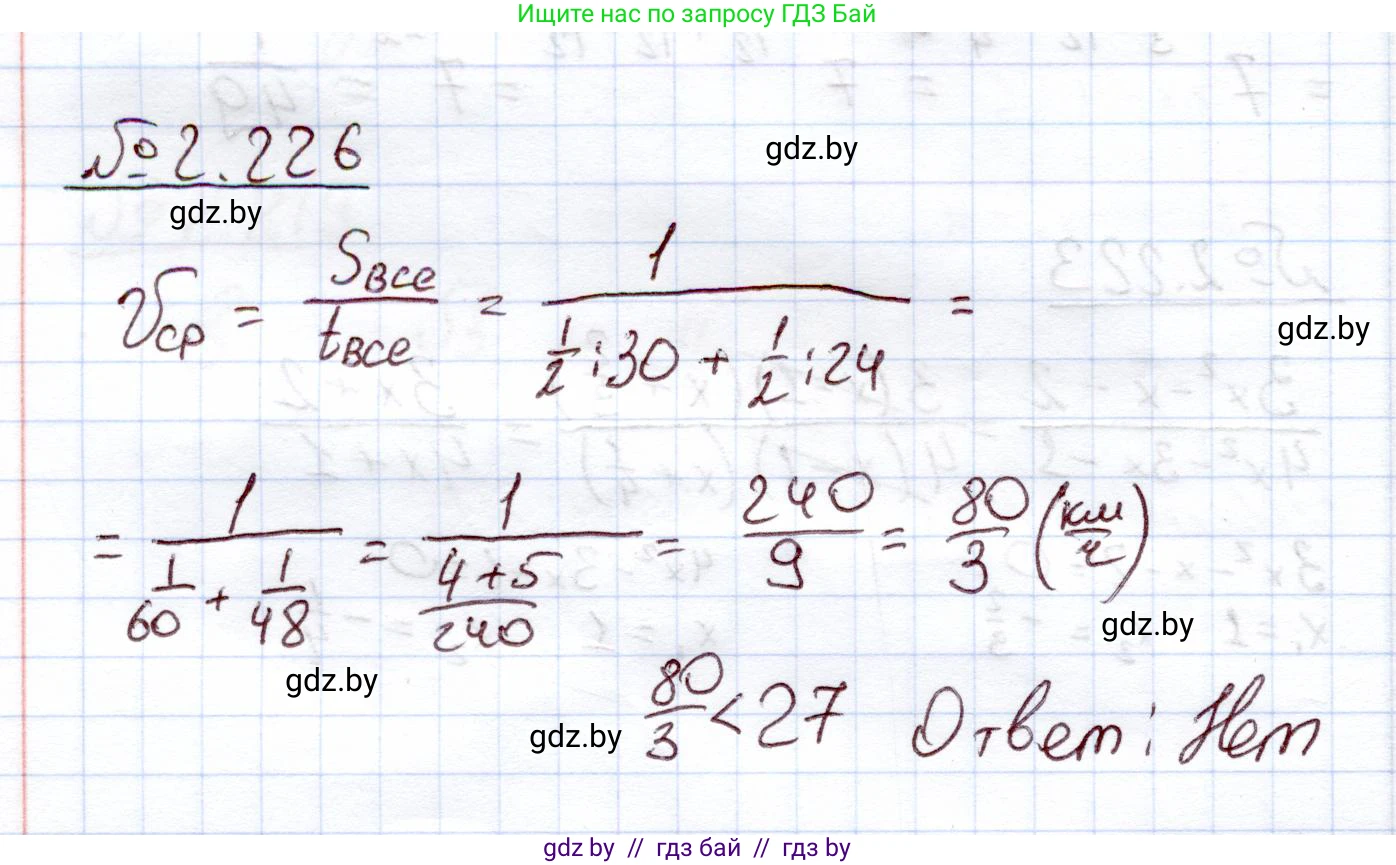 Ищите нас по запросу ГДЗ Бай
№ 2.226
gdz.by
gdz.by
𝒱ср = Sвсе / tвсе = 1 / (1/2 : 30 + 1/2 : 24) =
gdz.by
= 1 / (1/60 + 1/48) = 1 / ((4+5)/240) = 240/9 = 80/3 (км/ч)
gdz.by
gdz.by
80/3 < 27 Ответ: Нет
gdz.by
gdz by // гдз бай // гдз by